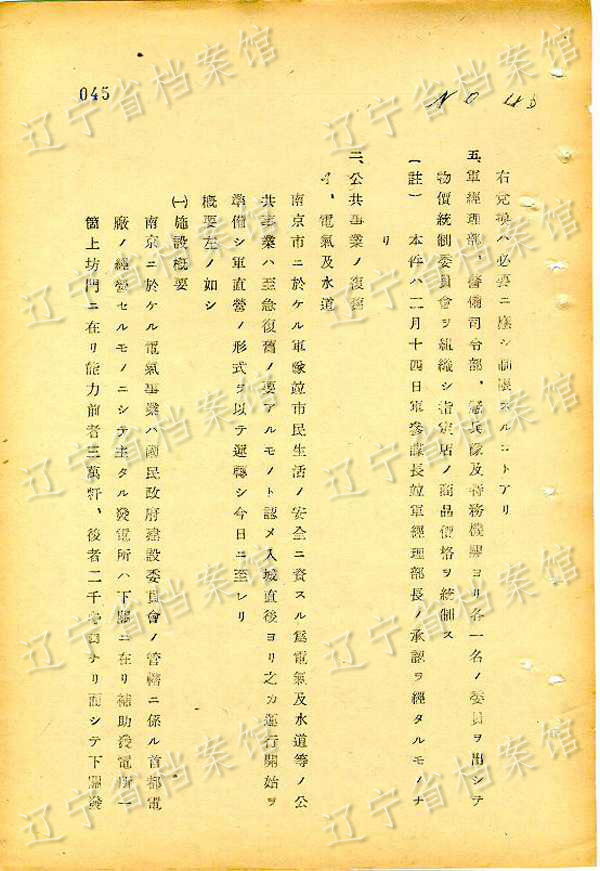 045
NO 113
右兌換ハ必要ニ應シ制限スルコトアリ
五、軍經理部、警備司令部、憲兵隊及特務機關ヨリ各一名ノ委員ヲ出シテ
物價統制委員會ヲ組織シ指定店ノ商品價格ヲ統制ス
(註) 本件ハ二月十四日軍參謀長竝軍經理部長ノ承認ヲ經タルモノナ
リ
二、公共事業ノ復舊
イ、電氣及水道
南京市ニ於ケル軍隊竝市民生活ノ安全ニ資スル爲電氣及水道等ノ公
共事業ハ至急復舊ノ要アルモノト認メ入城直後ヨリ之カ運行開始ヲ
準備シ軍直營ノ形式ヲ以テ運轉シ今日ニ至レリ
概要左ノ如シ
(一) 施設概要
南京ニ於ケル電氣事業ハ國民政府建設委員會ノ管轄ニ係ル首都電
廠ノ經營セルモノニシテ主タル發電所ハ下關ニ在リ補助發電所一
箇上坊門ニ在リ能力前者三萬粁、後者二千ナリ而シテ下關發
辽宁省档案馆
辽宁省档案馆
辽宁省档案馆
辽宁省档案馆
辽宁省档案馆
辽宁省档案馆
辽宁省档案馆
辽宁省档案馆
辽宁省档案馆
辽宁省档案馆
辽宁省档案馆
辽宁省档案馆